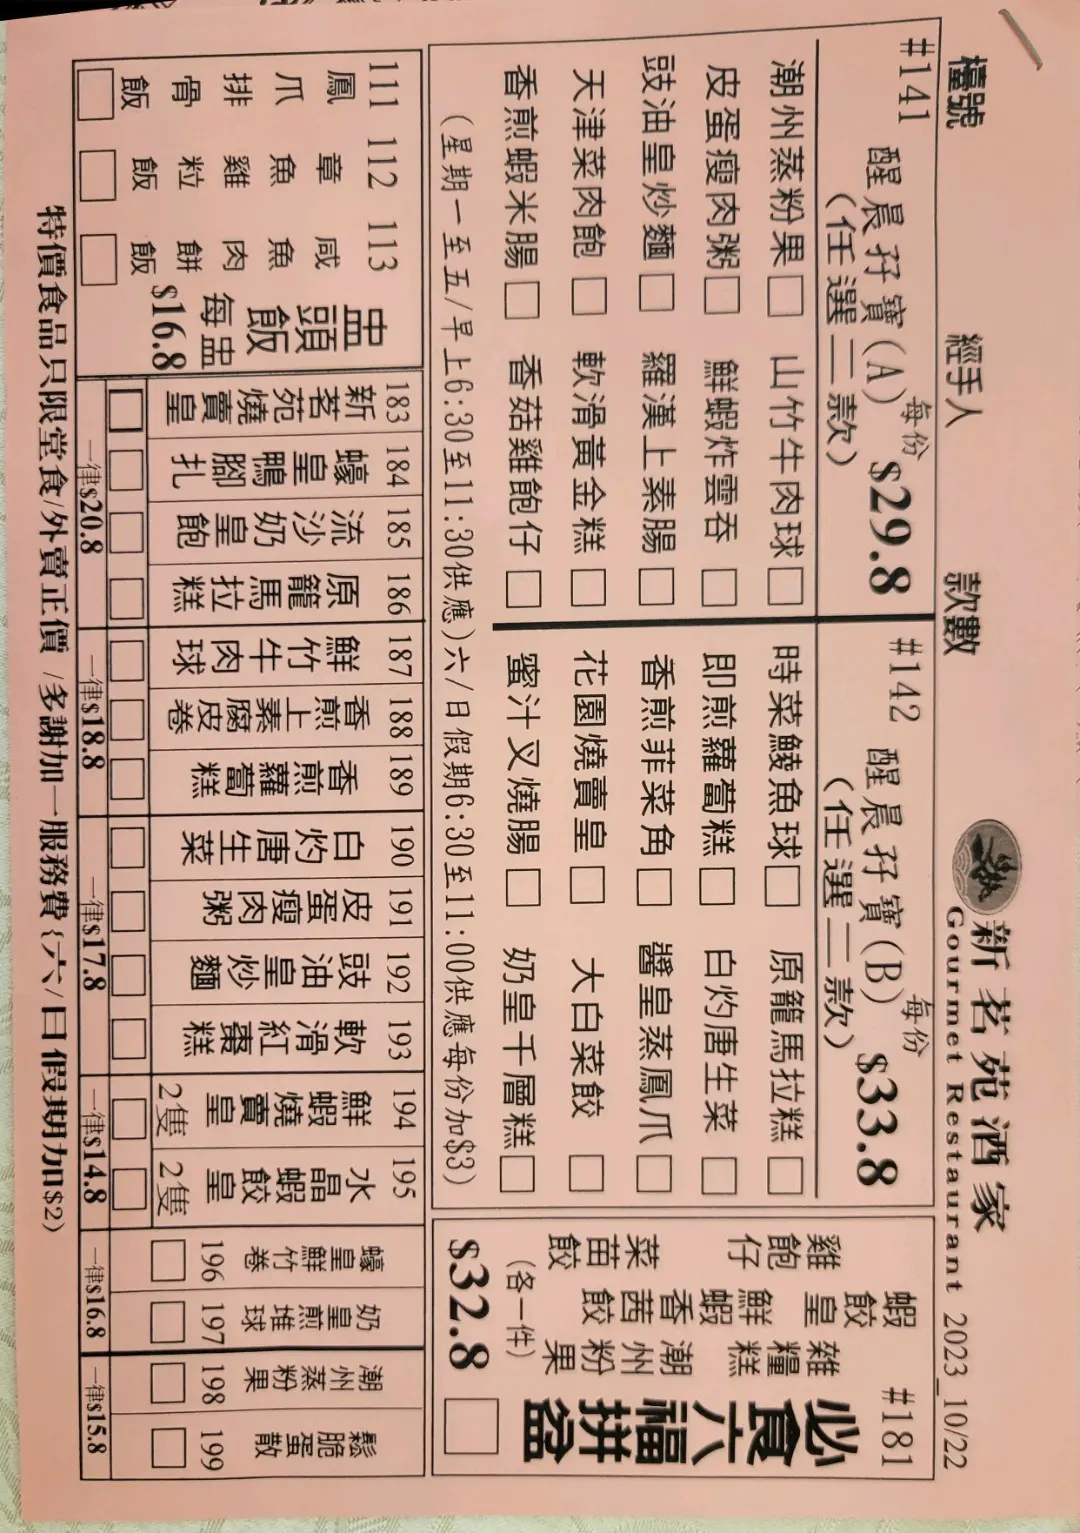 檯號 經手人 款數 新茗苑酒家
Gourmet Restaurant 2023_10/22
#141 醒晨孖寶(A) 每份 $29.8
(任選二款)
潮州蒸粉果 山竹牛肉球
皮蛋瘦肉粥 鮮蝦炸雲吞
豉油皇炒麵 羅漢上素腸
天津菜肉飽 軟滑黃金糕
香煎蝦米腸 香菇雞飽仔
#142 醒晨孖寶(B) 每份 $33.8
(任選二款)
時菜鯪魚球 原籠馬拉糕
即煎蘿蔔糕 白灼唐生菜
香煎菲菜角 醬皇蒸鳳爪
花園燒賣皇 大白菜餃
蜜汁叉燒腸 奶皇千層糕
(星期一至五/早上6:30至11:30供應)六/日假期6:30至11:00供應每份加$3)
#181
必食六福拼盆
蝦餃皇 雜糧糕
雞飽仔 鮮蝦香茜餃 潮州粉果
菜苗餃
(各一件)
$32.8
111 鳳爪排骨飯
112 章魚雞粒飯
113 咸魚肉餅飯
盅頭飯
每盅
$16.8
183 新茗苑燒賣皇
184 蠔皇鴨腳扎
185 流沙奶皇飽
186 原籠馬拉糕
一律$20.8
187 鮮竹牛肉球
188 香煎上素腐皮卷
189 香煎蘿蔔糕
一律$18.8
190 白灼唐生菜
191 皮蛋瘦肉粥
192 豉油皇炒麵
193 軟滑紅棗糕
一律$17.8
194 鮮蝦燒賣皇 2隻
195 水晶蝦餃皇 2隻
一律$14.8
196 蠔皇鮮竹卷
197 奶皇煎堆球
一律$16.8
198 潮州蒸粉果
199 鬆脆蛋散
一律$15.8
特價食品只限堂食/外賣正價 /多謝加一服務費{六/日假期加$2)